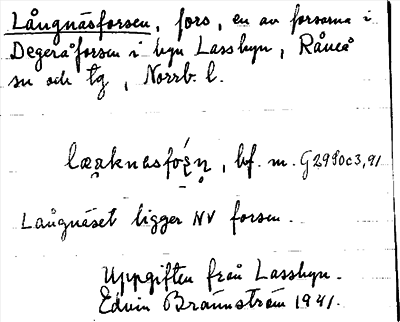 Långnäsforsen, fors, en av forsarna i
Degeråforsen i byn Lassbyn, Råneå
sn och tg, Norrb. l.
bf. m. G2990c3,91
Långnäset ligger NV forsen.
Uppgiften från Lassbyn.
Edvin Brännström 1941.